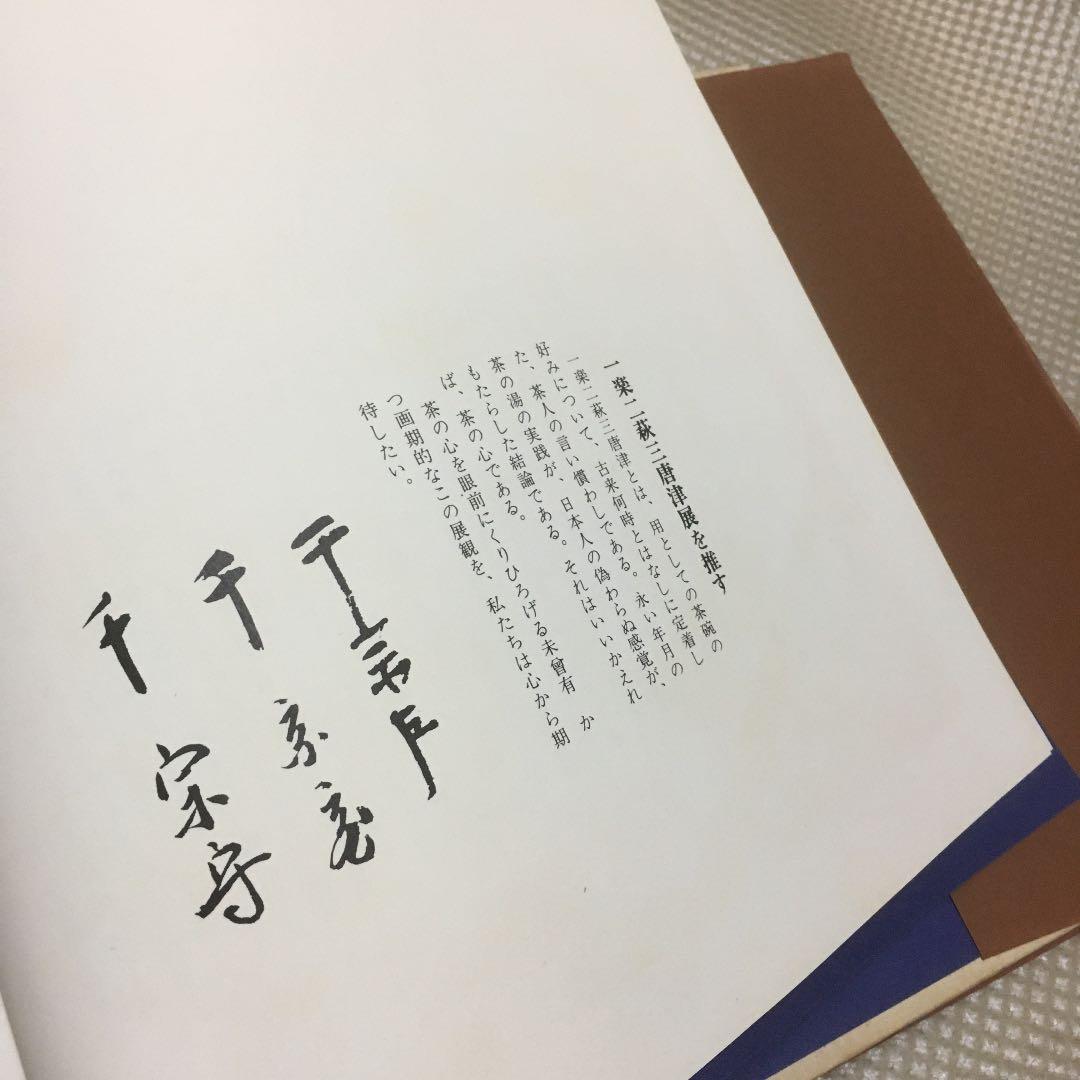 一楽二萩三唐津展を推す
一楽二萩三唐津とは、用としての茶碗の
好みについて、古来何時とはなしに定着し
た、茶人の言い慣わしである。永い年月の
茶の湯の実践が、日本人の偽わらぬ感覚が、
もたらした結論である。それはいいかえれ
ば、茶の心である。
茶の心を眼前にくりひろげる未曾有 か
つ画期的なこの展観を、私たちは心から期
待したい。
千宗左
千宗室
千宗守